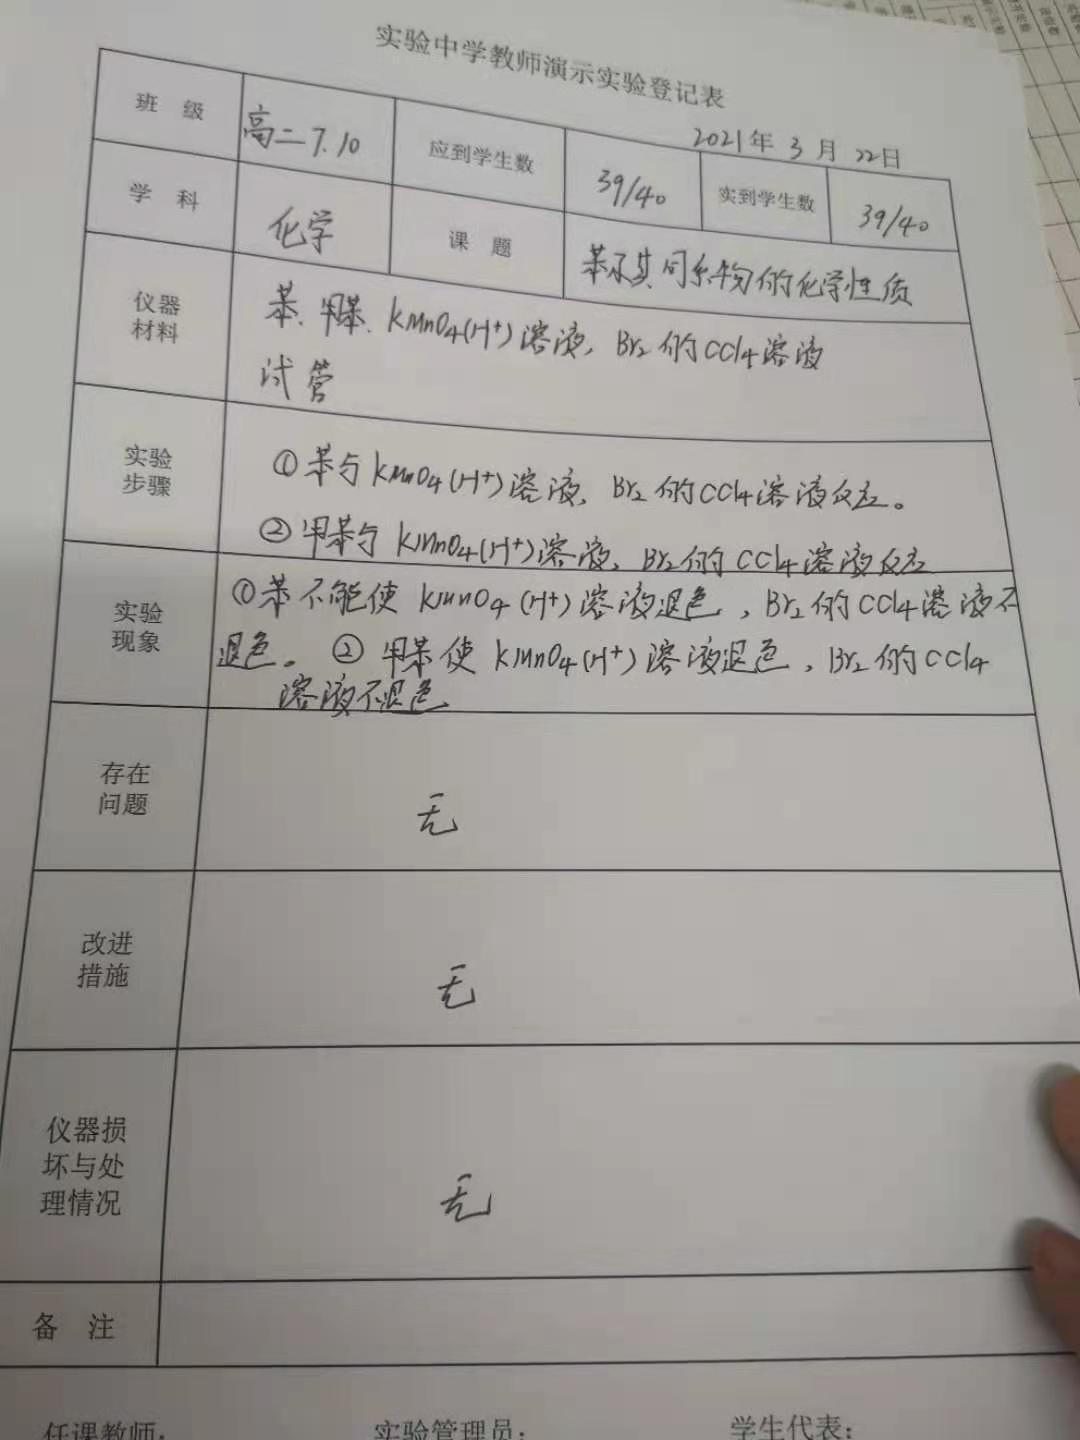 实验中学教师演示实验登记表
2021年 3月 22日
班 级 高二7.10 应到学生数 39/40 实到学生数 39/40
学 科 化学 课 题 苯及其同系物的化学性质
仪器
材料
苯、甲苯、KMnO4(H+)溶液, Br2的CCl4溶液
试管
实验
步骤
①苯与KMnO4(H+)溶液, Br2的CCl4溶液反应。
②甲苯与KMnO4(H+)溶液、Br2的CCl4溶液反应
实验
现象
①苯不能使KMnO4(H+)溶液退色, Br2的CCl4溶液不
退色。②甲苯使KMnO4(H+)溶液退色, Br2的CCl4
溶液不退色
存在
问题
无
改进
措施
无
仪器损
坏与处
理情况
无
备 注
任课教师: 实验管理员: 学生代表: